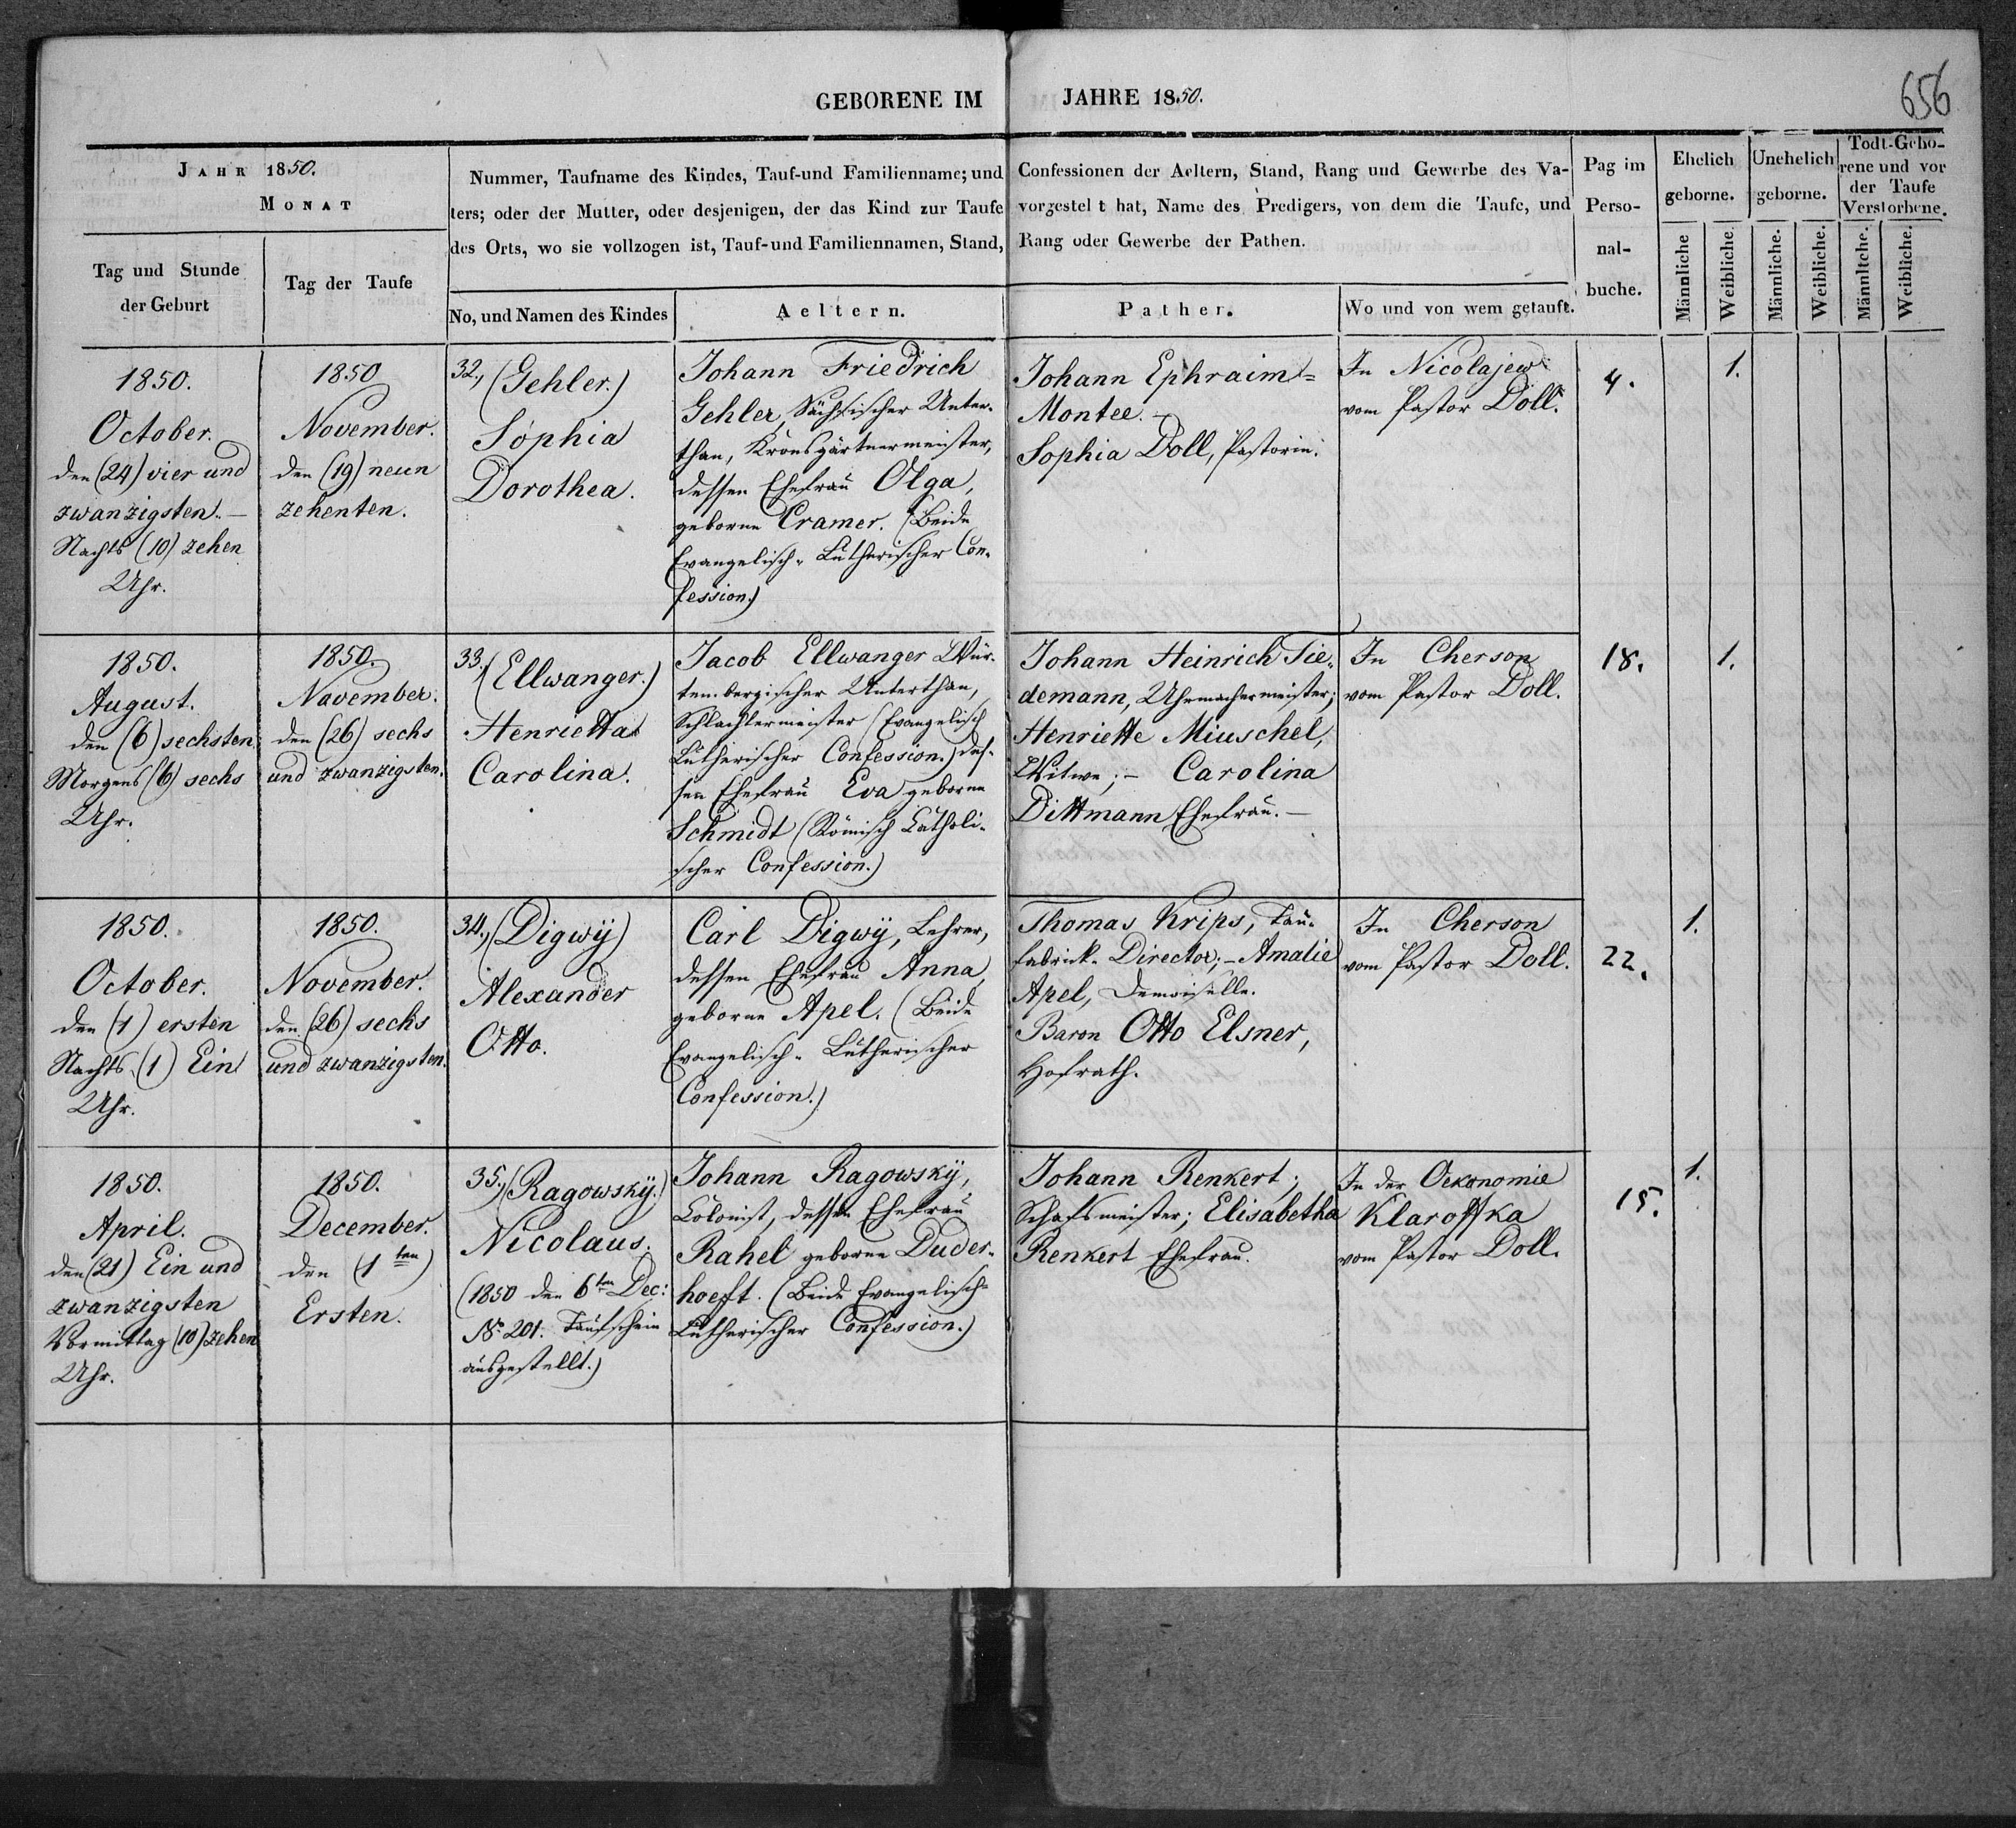 656
GEBORENE IM JAHRE 1850.
JAHR 1850.
MONAT
Tag und Stunde
der Geburt
Tag der Taufe
Nummer, Taufname des Kindes, Tauf-und Familienname; und
ters; oder der Mutter, oder desjenigen, der das Kind zur Taufe
des Orts, wo sie vollzogen ist, Tauf-und Familiennamen, Stand,
No, und Namen des Kindes
Aeltern.
Confessionen der Aeltern, Stand, Rang und Gewerbe des Va-
vorgestel t hat, Name des Predigers, von dem die Taufe, und
Rang oder Gewerbe der Pathen.
Pather.
Wo und von wem getauft.
Pag im
Perso-
nal-
buche.
Ehelich
geborne.
Unehelich
geborne.
Todt-Gebo-
rene und vor
der Taufe
Verstorbene.
Männliche
Weibliche.
Männliche.
Weibliche.
Männltche.
Weibliche.
1850.
October.
den (24) vier und
zwanzigsten. —
Nachts (10) zehen
Uhr.
1850
November.
den (19) neun
zehenten.
32., (Gehler.)
Sophia
Dorothea.
Johann Friedrich
Gehler, Sächsischer Unter-
than, Kronsgärtnermeister,
dessen Ehefrau Olga,
geborne Cramer. (Beide
Evangelisch-Lutherischer Con-
fession.)
Johann Ephraim=
Montee. —
Sophia Doll, Pastorin.
In Nicolajew
vom Pastor Doll.
4.
1.
1850.
August.
den (6) sechsten
Morgens (6) sechs
Uhr.
1850.
November.
den (26) sechs
und zwanzigsten.
33., (Ellwanger.)
Henrietta
Carolina.
Jacob Ellwanger Wür-
tembergischer Unterthan,
Schlachtermeister (Evangelisch
Lutherischer Confession.) des-
sen Ehefrau Eva geborne
Schmidt (Römisch Catholi-
scher Confession.)
Johann Heinrich Tie-
demann, Uhrmachermeister;
Henriette Miuschel,
Witwe; — Carolina
Dittmann Ehefrau. —
In Cherson
vom Pastor Doll.
18.
1.
1850.
October.
den (1) ersten
Nachts (1) Ein
Uhr.
1850.
November.
den (26) sechs
und zwanzigsten.
34., (Digwÿ)
Alexander
Otto.
Carl Digwÿ, Lehrer,
dessen Ehefrau Anna,
geborne Apel. (Beide
Evangelisch-Lutherischer
Confession.)
Thomas Krips, Tau-
fabrick-Director; — Amalie
Apel, Demoiselle.
Baron Otto Elsner,
Hofrath.
In Cherson
vom Pastor Doll.
22.
1.
1850.
April.
den (21) Ein und
zwanzigsten
Vormittag (10) zehen
Uhr.
1850.
December.
den (1ten)
Ersten.
35., (Ragowskÿ.)
Nicolaus.
(1850 den 6ten Dec:
No 201. Taufschein
ausgestellt.)
Johann Ragowskÿ,
Colonist, dessen Ehefrau
Rahel geborne Duder-
hoeft. (Beide Evangelisch-
Lutherischer Confession.)
Johann Renkert,
Schafsmeister; Elisabetha
Renkert Ehefrau.
In der Oekonomie
Klaroffka
vom Pastor Doll.
15.
1.